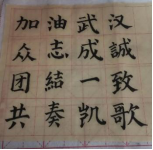 加油武汉
众志成誠
团結一致
共奏凯歌